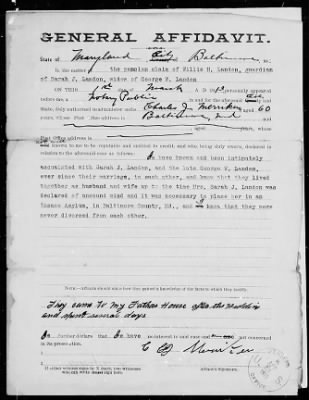 GENERAL AFFIDAVIT.
State of Maryland City of Baltimore ss:
In the matter of the pension claim of Willis H. Landon, guardian
of Sarah J. Landon, widow of George W. Landon
ON THIS 1st day of March A. D. 1913 personally appeared
before me, a Notary Public in and for the aforesaid City
State, duly authorized to administer oaths Charles J. Merriken aged 60
years, whose Post Office address is Baltimore, Md
aged years, whose
Post Office address is
well known to me to be reputable and entitled to credit, and who, being duly sworn, declared in
relation to the aforesaid case as follows:
I have known and been intimately
accquainted with Sarah J. Landon, and the late George W. Landon,
ever since their marriage, to each other, and know that they lived
together as husband and wife up to the time Mrs. Sarah J. Landon was
declared of unsound mind and it was necessary to place her in an
Insane Asylum, in Baltimore County, Md., and I know that they were
never divorced from each other.
NOTE.—Affiants should state how they gained a knowledge of the facts to which they testify.
They came to my Fathers House after the wedding
and spent several days
I further declare that I have no interest in said case and am not concerned
in its prosecution.
C J Merriken
If either witness signs by X mark, two witnesses
who can write should sign here.
Affiant's Signature.